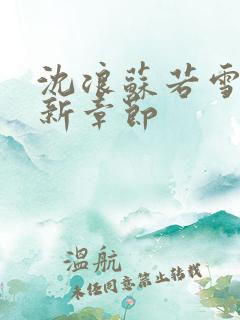 沈浪蘇若雪
新章節
溫航
未经同意禁止转载